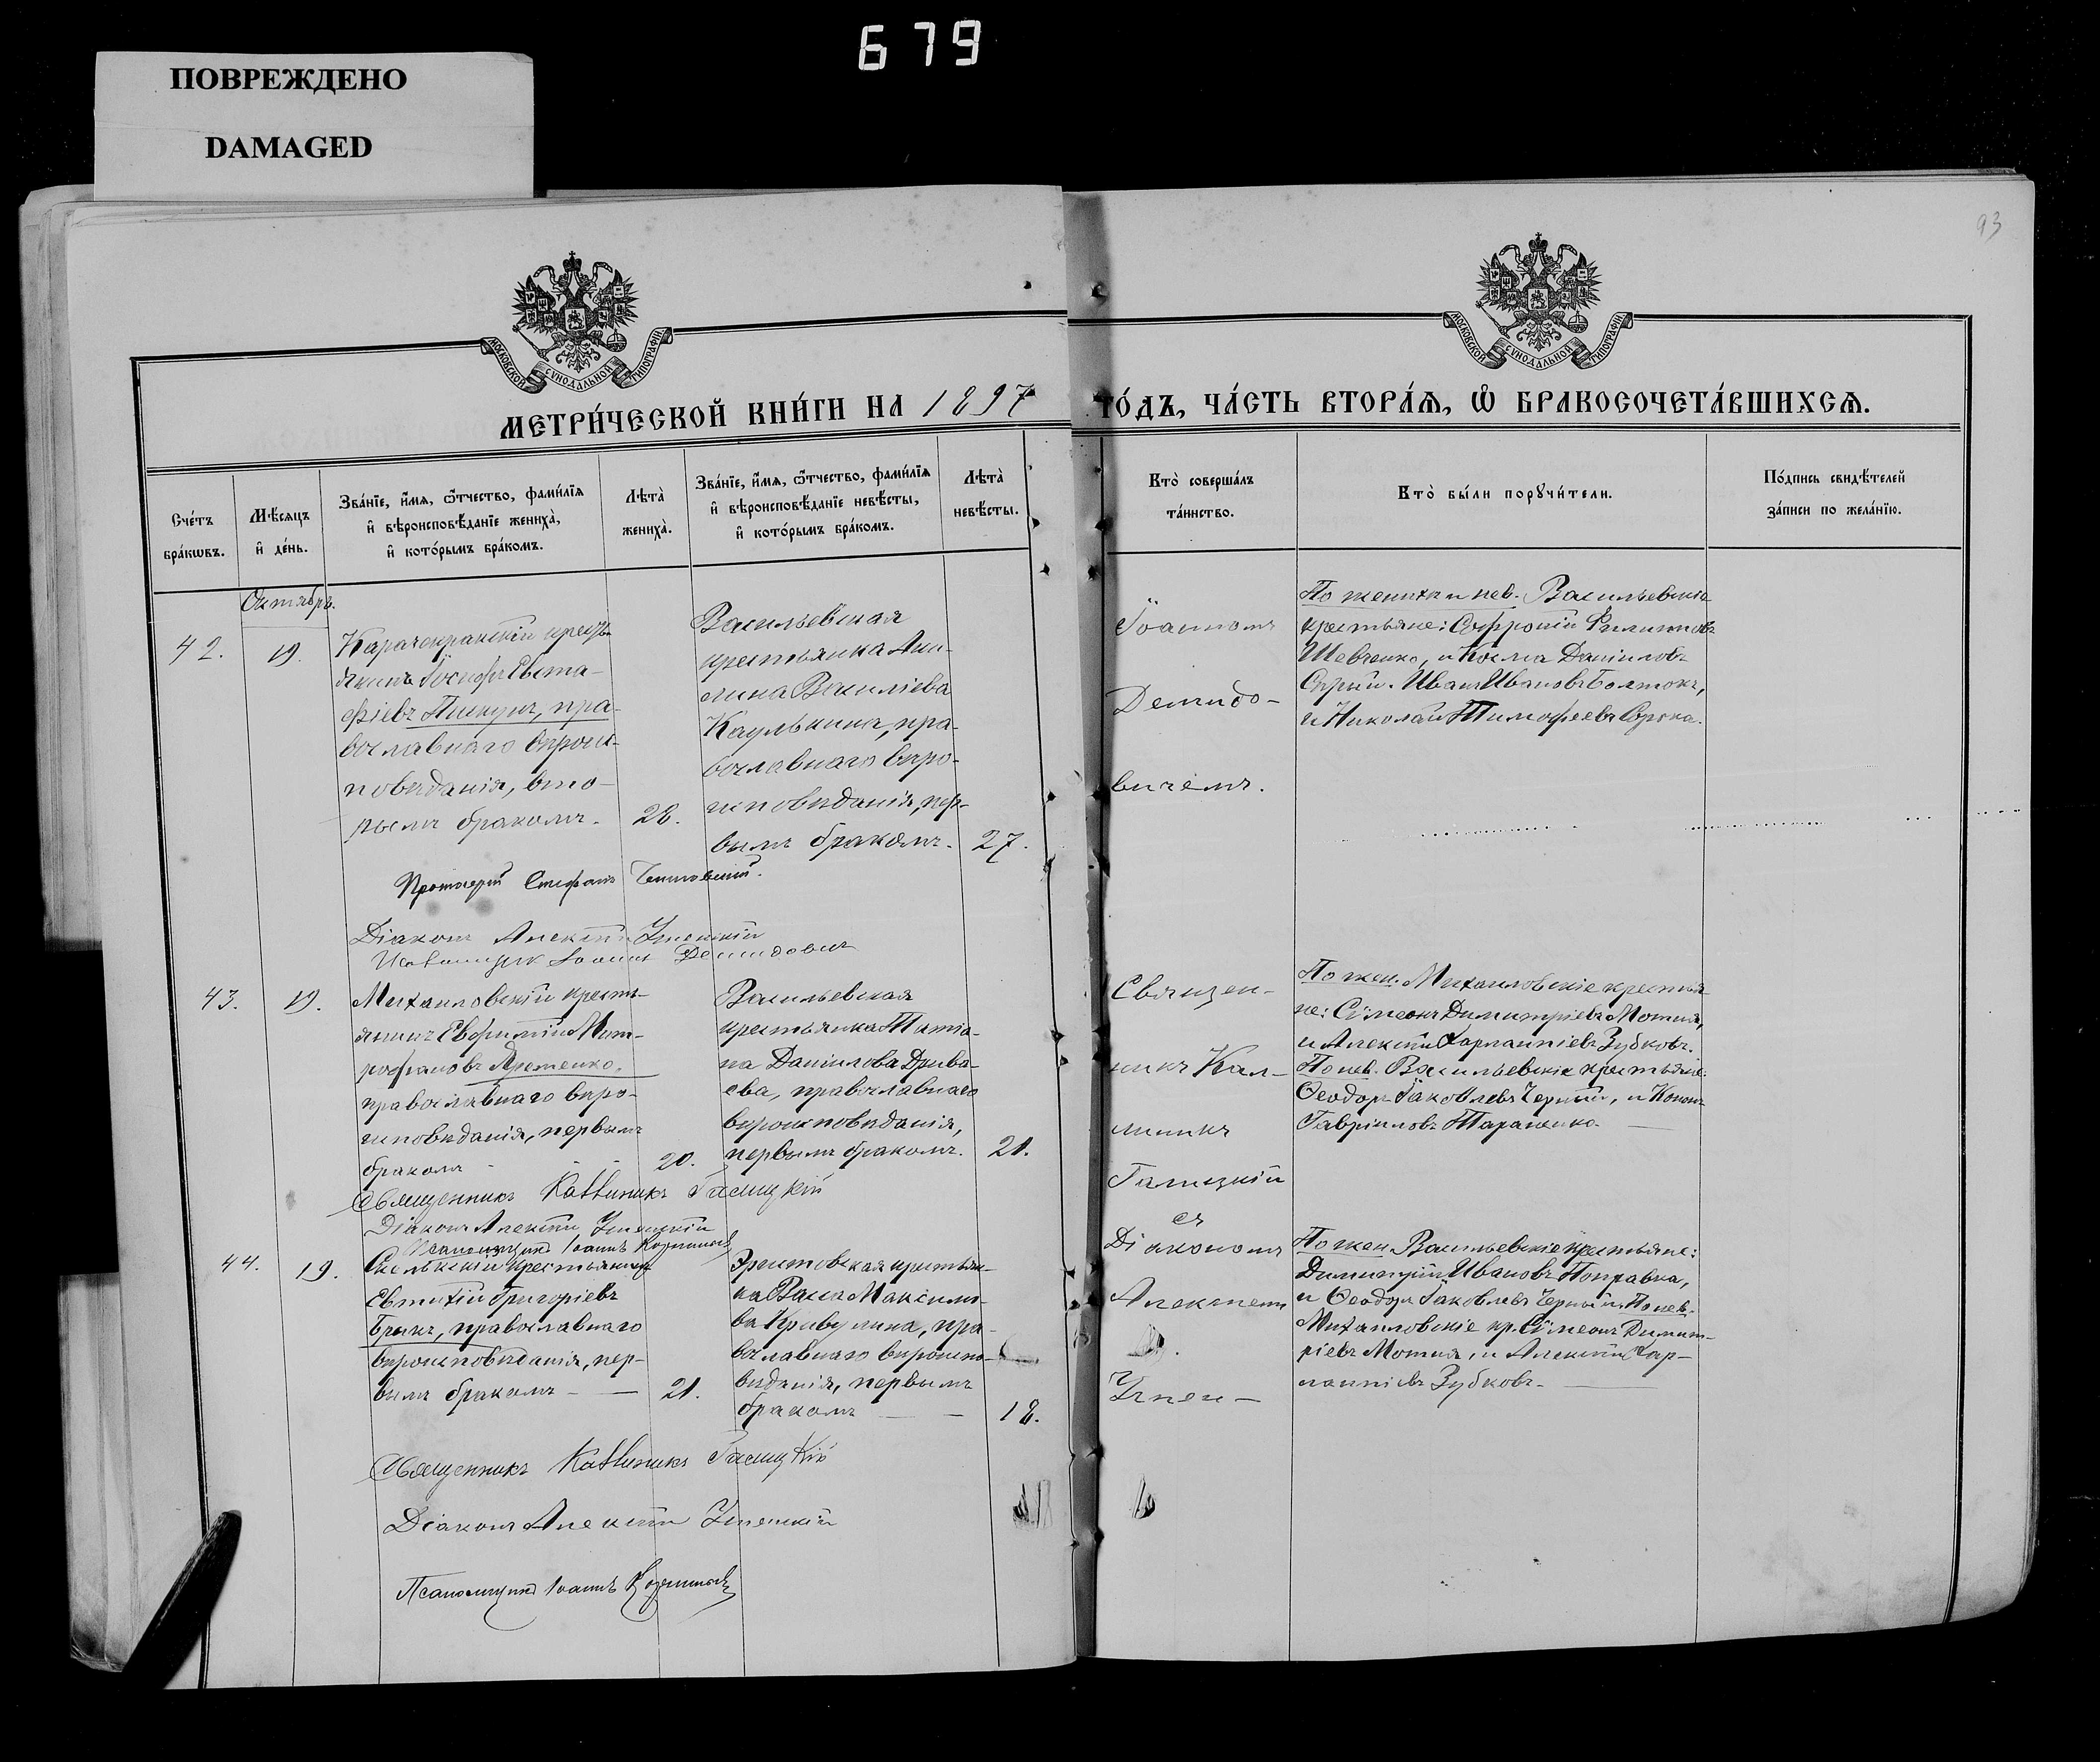 679
ПОВРЕЖДЕНО
DAMAGED
93
МОСКОВСКОЙ СѴНОДАЛЬНОЙ ТИПОГРАФІИ
МОСКОВСКОЙ СѴНОДАЛЬНОЙ ТИПОГРАФІИ
МЕТРИ́ЧЕСКОЙ КНИ́ГИ НА 1897 ГО́ДЪ, ЧА́СТЬ ВТОРА́Я, Ѡ БРАКОСОЧЕТА́ВШИХСѦ.
Сче́тъ
бра́кѡвъ.
Мѣ́сяцъ
и҆ де́нь.
Зва́нїе, и҆́мя, ѻ҆́тчество, фами́лїя
и҆ вѣроисповѣ́данїе жениха̀,
и҆ кото́рымъ бра́комъ.
Лѣта̀
жениха̀.
Зва́нїе, и҆́мя, ѻ҆́тчество, фами́лїя
и҆ вѣроисповѣ́данїе невѣ́сты,
и҆ кото́рымъ бра́комъ.
Лѣта̀
невѣ́сты.
Кто̀ соверша́лъ
та́инство.
Кто̀ бы́ли порꙋчи́тели.
По́дпись свидѣ́телей
за́писи по жела́нїю.
Октябрь.
42.
19.
Карачекракскій крестья-
янинъ Іосифъ Евста-
фіевъ Пискунъ, пра-
вославнаго вѣроис-
повѣданія, вто-
рымъ бракомъ.
28.
Васильевская
крестьянка Аки-
лина Василіева
Каулькина, пра-
вославнаго вѣро-
исповѣданія, пер-
вымъ бракомъ.
27.
Іоанномъ
Демидо-
вичемъ.
По жениху и нев. Васильевскіе
крестьяне: Софроній Филипповъ
Шевченко, и Косма Даніиловъ
Сѣрый. Иванъ Ивановъ Болтокъ,
и Николай Тимофеевъ Сорока.
Протоіерей Стефанъ
Діаконъ Алексій
Іоаннъ Демидовичъ
43.
19.
Михайловскій кресть-
янинъ Евфимій Мит-
рофановъ Яременко,
православнаго вѣро-
исповѣданія, первымъ
бракомъ
20.
Васильевская
крестьянка Татіа-
на Даніилова Дрива-
ева, православнаго
вѣроисповѣданія,
первымъ бракомъ.
21.
Священ-
никъ Кал-
линикъ
Галицкій
съ
По жен. Михайловскіе крестья-
не: Сѵмеонъ Димитріевъ Мотия,
и Алексій Харлампіевъ Зубковъ.
По нев. Васильевскіе крестьяне:
Ѳеодоръ Іаковлевъ Черный, и Кононъ
Гавріиловъ Тараненко.
Священникъ Каллиникъ Галицкій
Діаконъ Алексій
Псаломщикъ Іоаннъ
44.
19.
Скельскій крестьянинъ
Евтихій Григоріевъ
Брыкъ, православнаго
вѣроисповѣданія, пер-
вымъ бракомъ
21.
Эристовская крестьян-
ка Васса Максимо-
ва Кривулина, пра-
вославнаго вѣроиспо-
вѣданія, первымъ
бракомъ
18.
Діакономъ
Алексіемъ
По жен. Васильевскіе крестьяне:
Димитрій Ивановъ Поправка,
и Ѳеодоръ Іаковлевъ Черный. По нев.
Михайловскіе кр. Сѵмеонъ Димит-
ріевъ Мотия, и Алексій Хар-
лампіевъ Зубковъ.
Священникъ Каллиникъ Галицкій
Діаконъ Алексій
Псаломщикъ Іоаннъ